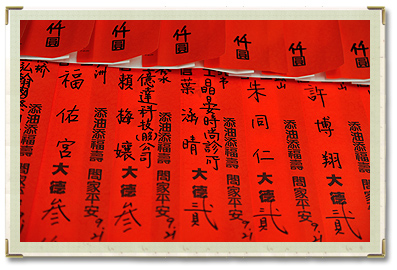 仟圓
仟圓
仟圓
仟圓
仟圓
仟圓
添油添福壽 閤家平安 9.21
許博翔 大德 貳
山
添油添福壽 閤家平安 9.21
朱同仁 大德 貳
添油添福壽 閤家平安 9.21
葉涵晴 大德 貳
添油添福壽 閤家平安 9.21
億達科技(股)公司
賴 大德 參
洲
添油添福壽 閤家平安 9.21
福佑宮 大德 參
添油添福壽 閤家平安